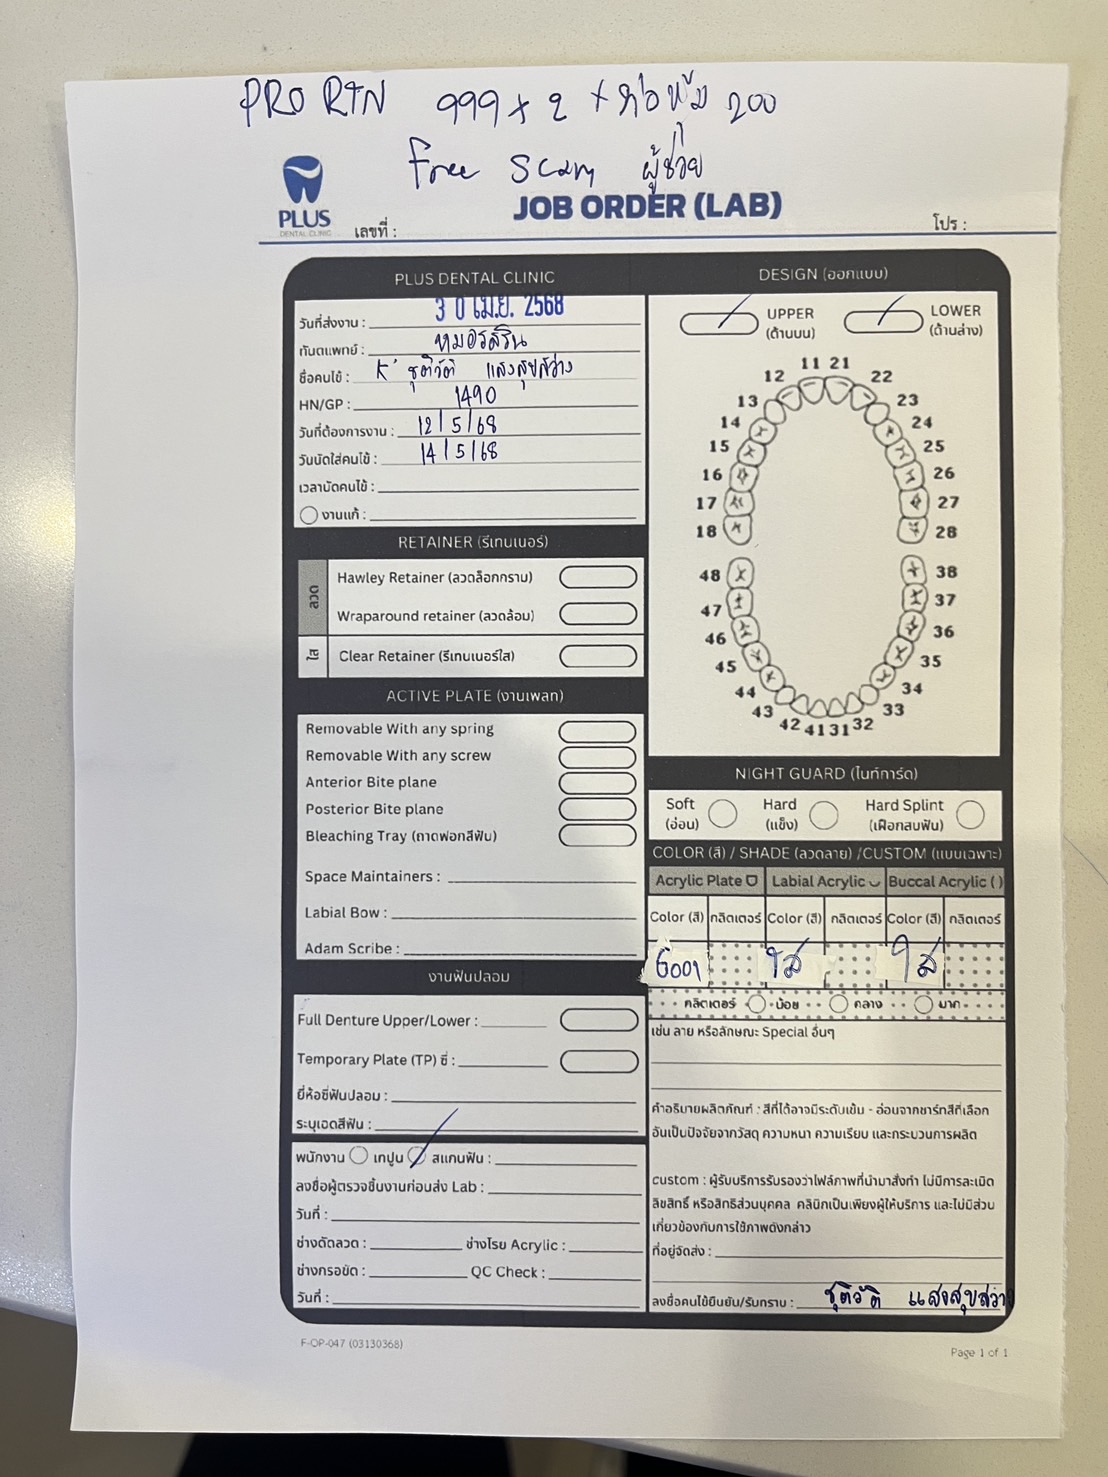 PRO RTN 999 x 2 + ท่อหุ้ม 200
Free Scan ผู้ช่วย
PLUS
DENTAL CLINIC
JOB ORDER (LAB)
เลขที่ :
โปร :
PLUS DENTAL CLINIC
วันที่ส่งงาน : 30 เม.ย. 2568
ทันตแพทย์ : หมอรสริน
ชื่อคนไข้ : K' ชุติวัติ แสงสุขสว่าง
HN/GP : 1490
วันที่ต้องการงาน : 12/5/68
วันนัดใส่คนไข้ : 14/5/68
เวลานัดคนไข้ :
งานแก้ :
RETAINER (รีเทนเนอร์)
ลวด
Hawley Retainer (ลวดล็อกกราม)
Wraparound retainer (ลวดล้อม)
ใส
Clear Retainer (รีเทนเนอร์ใส)
ACTIVE PLATE (งานเพลท)
Removable With any spring
Removable With any screw
Anterior Bite plane
Posterior Bite plane
Bleaching Tray (ถาดฟอกสีฟัน)
Space Maintainers :
Labial Bow :
Adam Scribe :
งานฟันปลอม
Full Denture Upper/Lower :
Temporary Plate (TP) ซี่ :
ยี่ห้อซี่ฟันปลอม :
ระบุเฉดสีฟัน :
พนักงาน เทปูน สแกนฟัน :
ลงชื่อผู้ตรวจชิ้นงานก่อนส่ง Lab :
วันที่ :
ช่างดัดลวด : ช่างโรย Acrylic :
ช่างกรอขัด : QC Check :
วันที่ :
DESIGN (ออกแบบ)
UPPER
(ด้านบน)
LOWER
(ด้านล่าง)
11 21
12 22
13 23
14 24
15 25
16 26
17 27
18 28
48 38
47 37
46 36
45 35
44 34
43 33
42 41 31 32
NIGHT GUARD (ไนท์การ์ด)
Soft
(อ่อน)
Hard
(แข็ง)
Hard Splint
(เฝือกสบฟัน)
COLOR (สี) / SHADE (ลวดลาย) /CUSTOM (แบบเฉพาะ)
Acrylic Plate Labial Acrylic Buccal Acrylic ( )
Color (สี) กลิตเตอร์ Color (สี) กลิตเตอร์ Color (สี) กลิตเตอร์
G001 ใส ใส
กลิตเตอร์ น้อย กลาง มาก
เช่น ลาย หรือลักษณะ Special อื่นๆ
คำอธิบายผลิตภัณฑ์ : สีที่ได้อาจมีระดับเข้ม - อ่อนจากชาร์ทสีที่เลือก
อันเป็นปัจจัยจากวัสดุ ความหนา ความเรียบ และกระบวนการผลิต
custom : ผู้รับบริการรับรองว่าไฟล์ภาพที่นำมาสั่งทำ ไม่มีการละเมิด
ลิขสิทธิ์ หรือสิทธิส่วนบุคคล คลินิกเป็นเพียงผู้ให้บริการ และไม่มีส่วน
เกี่ยวข้องกับการใช้ภาพดังกล่าว
ที่อยู่จัดส่ง :
ลงชื่อคนไข้ยืนยัน/รับทราบ : ชุติวัติ แสงสุขสว่าง
F-OP-047 (03130368)
Page 1 of 1